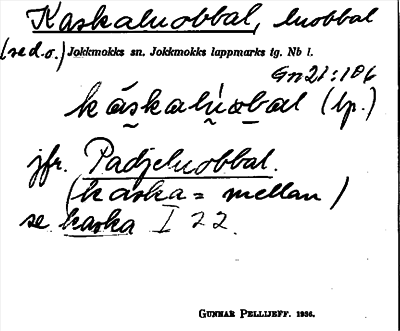 Kaskaluobbal, luobbal
(se d.o.) Jokkmokks sn. Jokkmokks lappmarks tg. Nb l.
Gn 21:106
káskalùobal (lp.)
jfr. Padjeluobbal.
(kaska = mellan)
se kaska I 22.
GUNNAR PELLIJEFF. 1936.